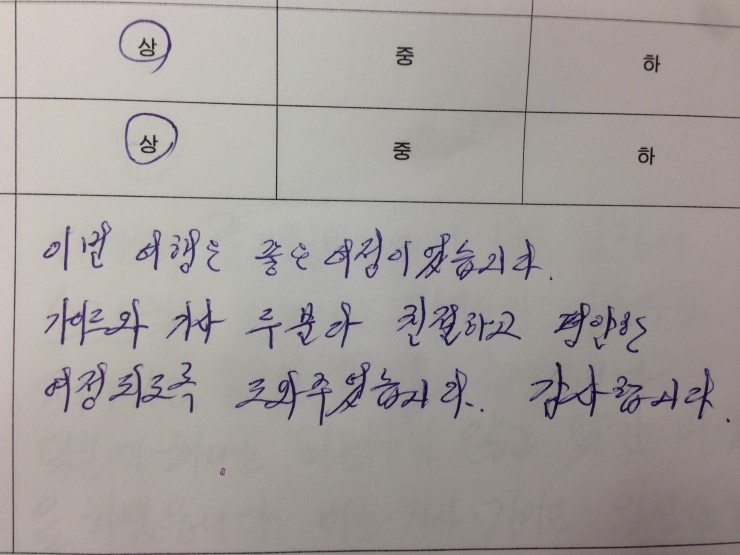 상 중 하
상 중 하
이번 여행은 좋은 여정이었습니다.
가이드와 기사 두분다 친절하고 평안한
여정되도록 도와주었습니다. 감사합니다.